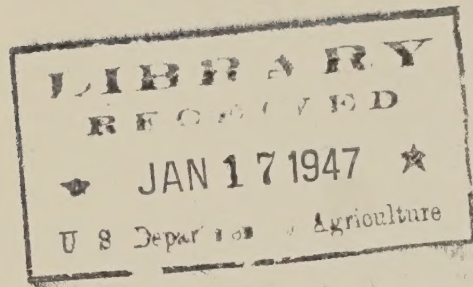 LIBRARY
RECEIVED
★ JAN 17 1947 ★
U S Department of Agriculture